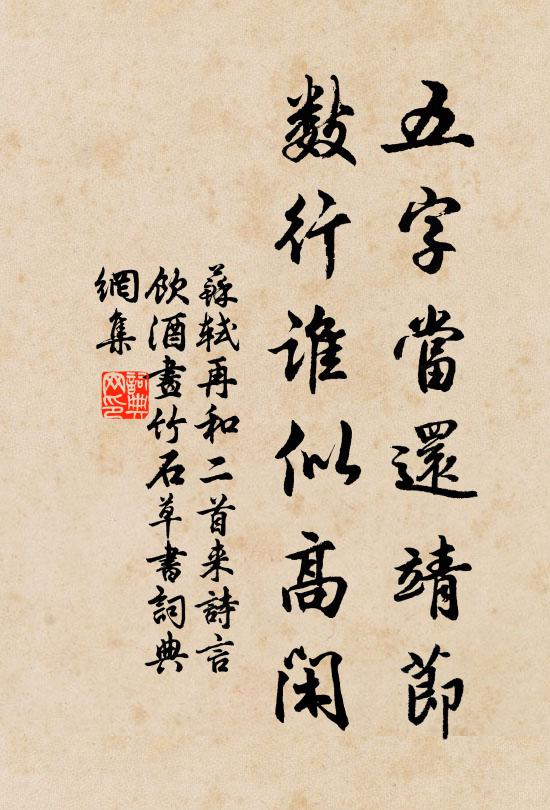 五字當還靖節
數行誰似高閑
蘇軾再和二首来詩言
飲酒畫竹石草書詞典
網集
詞典網印